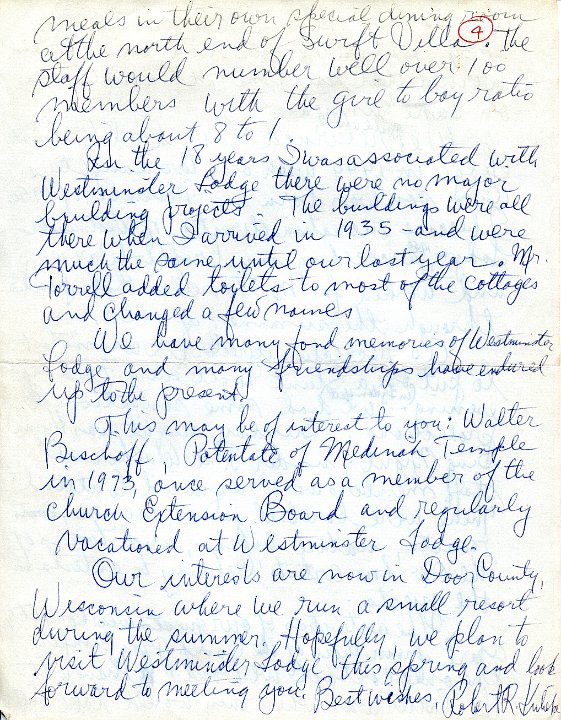 4
meals in their own special dining room
at the north end of Swift Villa. The
staff would number well over 100
members with the girl to boy ratio
being about 8 to 1.
In the 18 years I was associated with
Westminster Lodge there were no major
building projects. The buildings were all
there when I arrived in 1935 - and were
much the same until our last year. Mr.
Torrell added toilets to most of the cottages
and changed a few names
We have many fond memories of Westminster
Lodge and many friendships have endured
up to the present.
This may be of interest to you: Walter
Bischoff, Potentate of Medinah Temple
in 1973, once served as a member of the
Church Extension Board and regularly
vacationed at Westminster Lodge.
Our interests are now in Door County,
Wisconsin where we run a small resort
during the summer. Hopefully, we plan to
visit Westminster Lodge this spring and look
forward to meeting you. Best wishes, Robert R.